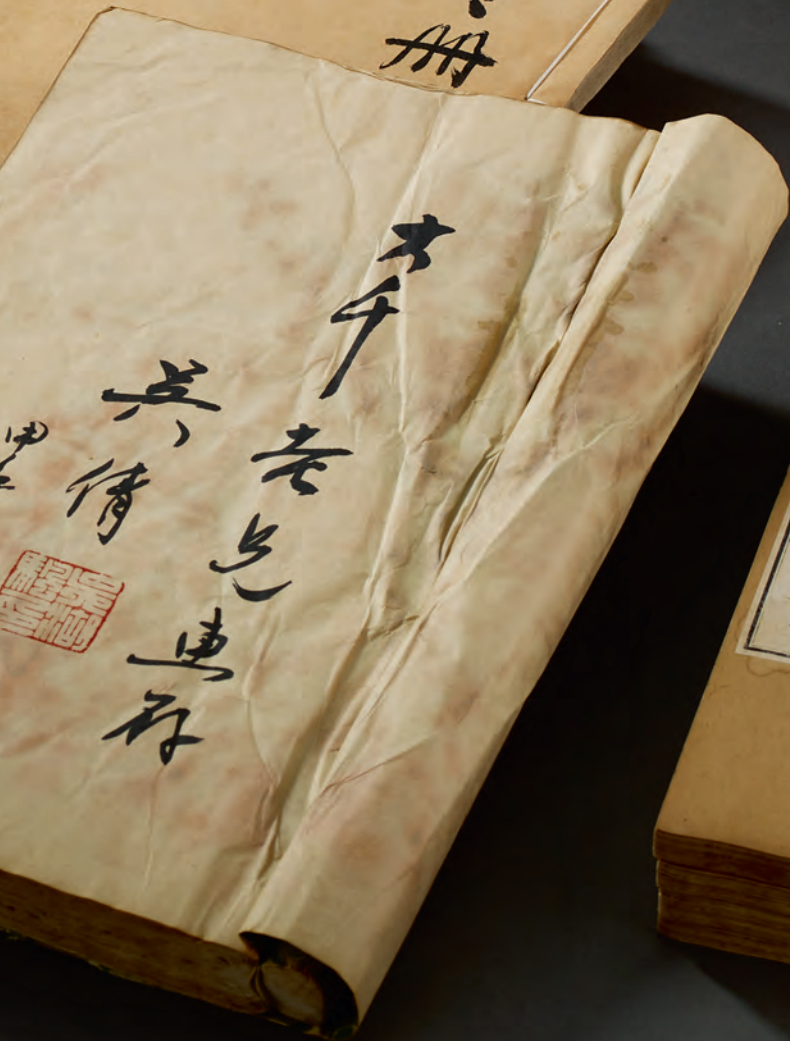 册
大千老兄惠存
吳倩
甲
吳湖颿印